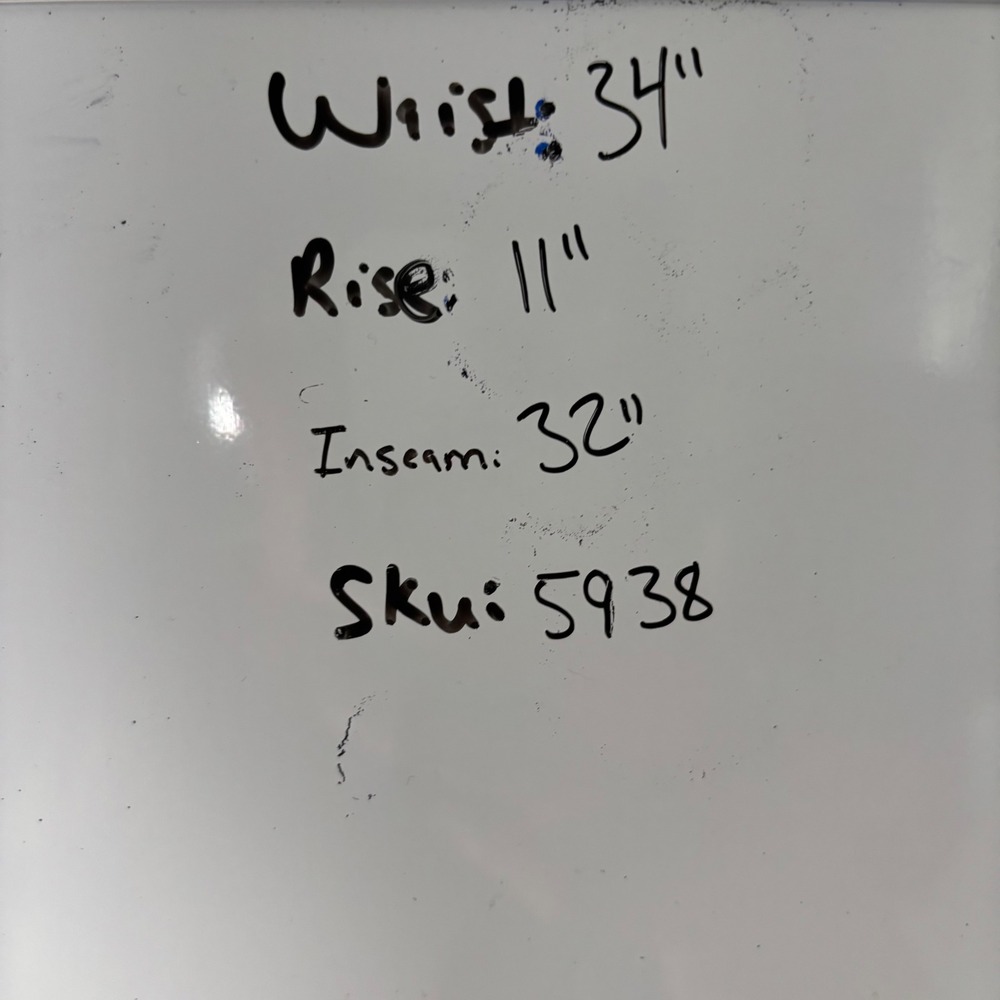 Waist: 34"
Rise: 11"
Inseam: 32"
Sku: 5938